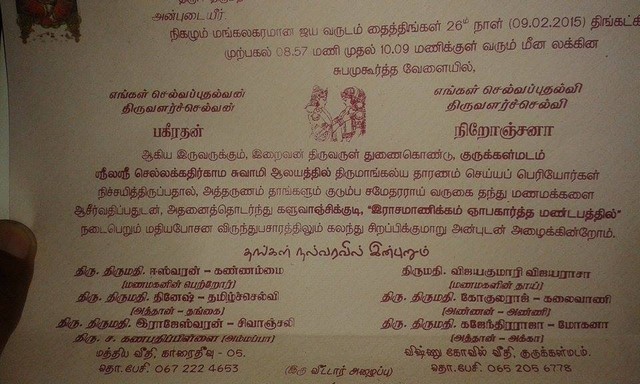 அன்புடையீர்
நிகழும் மங்கலகரமான ஜய வருடம் தைத்திங்கள் 26ம் நாள் (09.02.2015) திங்கட்கி
முற்பகல் 08.57 மணி முதல் 10.09 மணிக்குள் வரும் மீன லக்கின
சுபமுகூர்த்த வேளையில்,
எங்கள் செல்வப்புதல்வன் எங்கள் செல்வப்புதல்வி
திருவளர்ச்செல்வன் திருவளர்ச்செல்வி
பகீரதன் நிறோஞ்சனா
ஆகிய இருவருக்கும், இறைவன் திருவருள் துணைகொண்டு, குருக்கள்மடம்
ஸ்ரீலஸ்ரீ செல்லக்கதிர்காம சுவாமி ஆலயத்தில் திருமாங்கல்ய தாரணம் செய்யப் பெரியோர்கள்
நிச்சமித்திருப்பதால், அத்தருணம் தாங்களும் குடும்ப சமேதரராய் வருகை தந்து மணமக்களை
ஆசீர்வதிப்பதுடன், அதனைத்தொடர்ந்து களுவாஞ்சிக்குடி, "இராசமாணிக்கம் ஞாபகார்த்த மண்டபத்தில்"
நடைபெறும் மதியபோசன விருந்துபசாரத்திலும் கலந்து சிறப்பிக்குமாறு அன்புடன் அழைக்கின்றோம்.
தங்கள் நல்வரவில் இன்புறும்
திரு. திருமதி. ஈஸ்வரன் - கண்ணம்மை திருமதி. விஜயகுமாரி விஜயராசா
(மணமகளின் பெற்றோர்) (மணமகனின் தாய்)
திரு. திருமதி. தினேஷ் - தமிழ்செல்வி திரு. திருமதி. கோகுலராஜ் - கலைவாணி
(அத்தான் - தங்கை) (அண்ணன் - அண்ணி)
திரு. திருமதி. இராஜேஸ்வரன் - சிவாஞ்சலி திரு. திருமதி. கஜேந்திரராஜா - மோகனா
திரு. ச. கணபதிப்பிள்ளை (அம்மப்பா) (அத்தான் - அக்கா)
மத்திய வீதி, காரைதீவு - 05. விஷ்ணு கோவில் வீதி, குருக்கள்மடம்.
தொ.பேசி. 067 222 4653 (இரு வீட்டார் அழைப்பு) தொ.பேசி. 065 205 6778